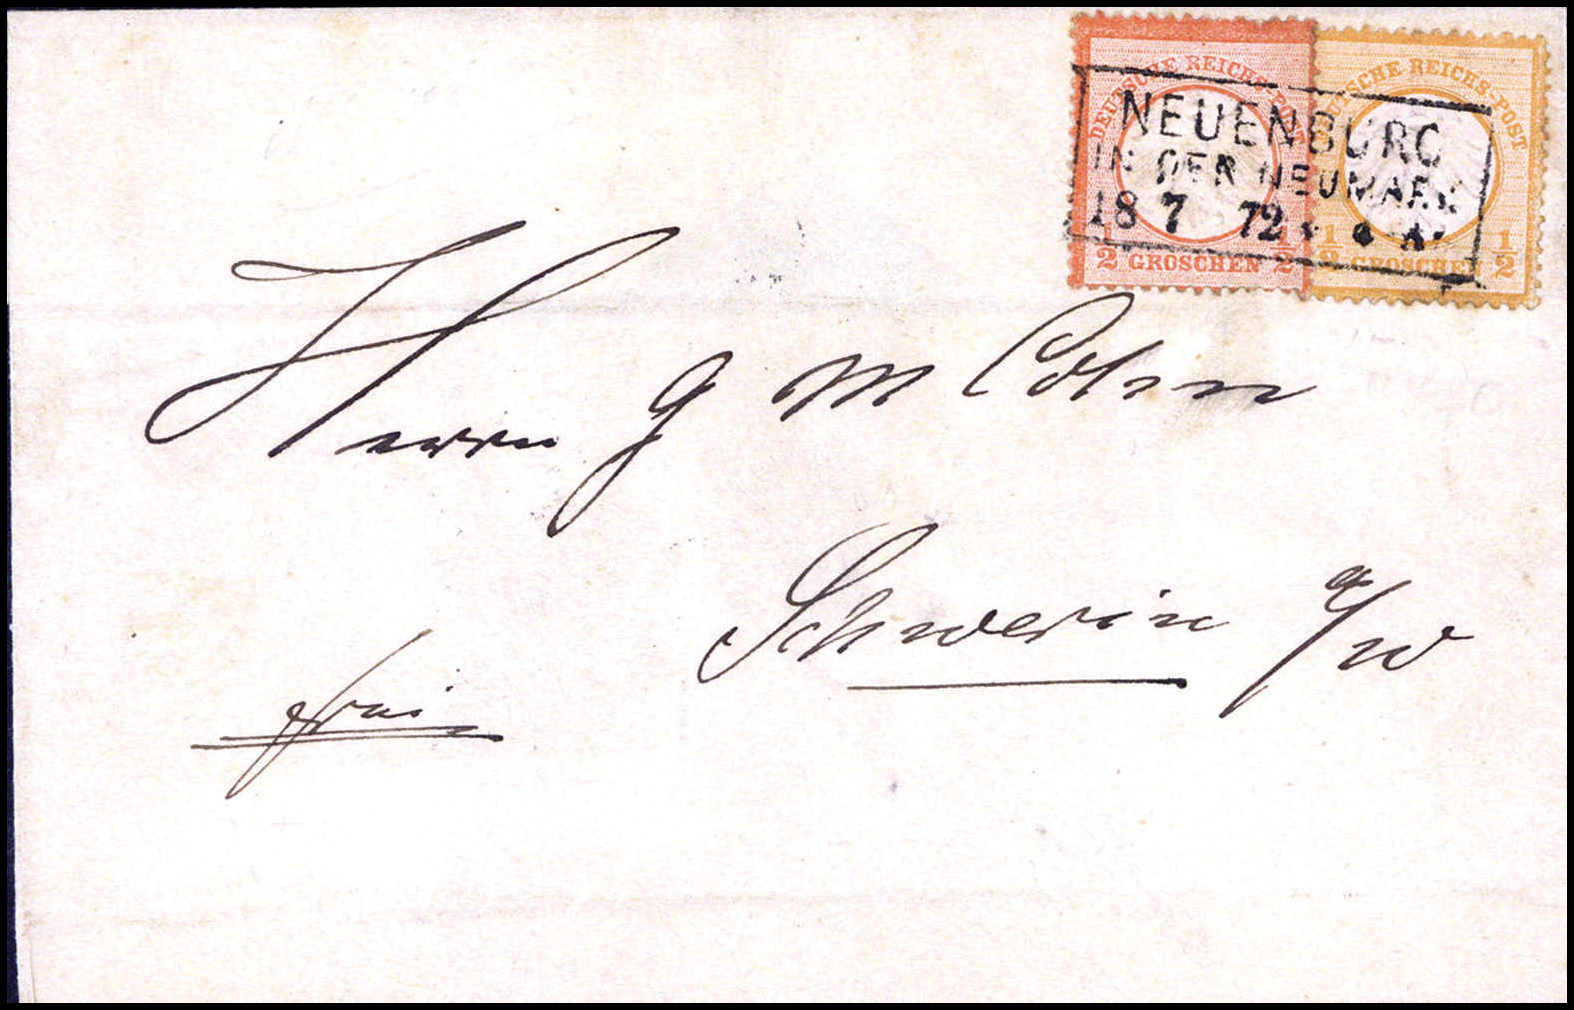 DEUTSCHE REICHS-POST
1/2 GROSCHEN 1/2
DEUTSCHE REICHS-POST
1/2 GROSCHEN 1/2
NEUENBURG
IN DER NEUMARK
18 7 72 * * A.
Herrn G M Cohn
Schwerin a/W
frei